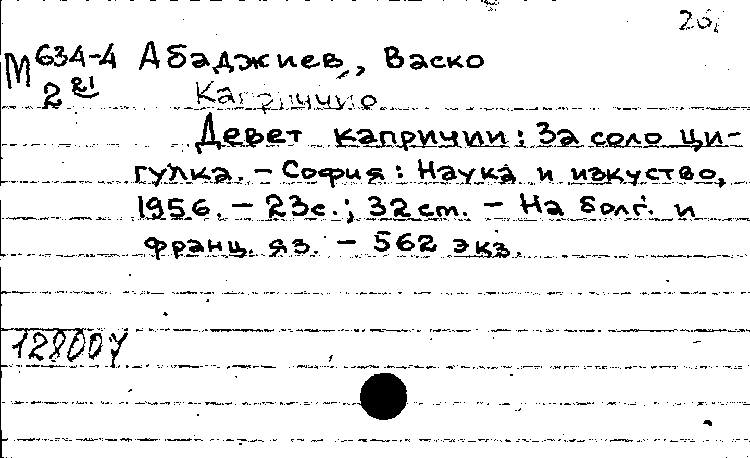 26
М 634-4 Абаджиев, Васко
2
Каприччио
Девет капричии: За соло ци-
гулка. - София: Наука и изкуство,
1956. - 23с.; 32 cm. - На болг. и
франц. яз. - 562 экз.
128007